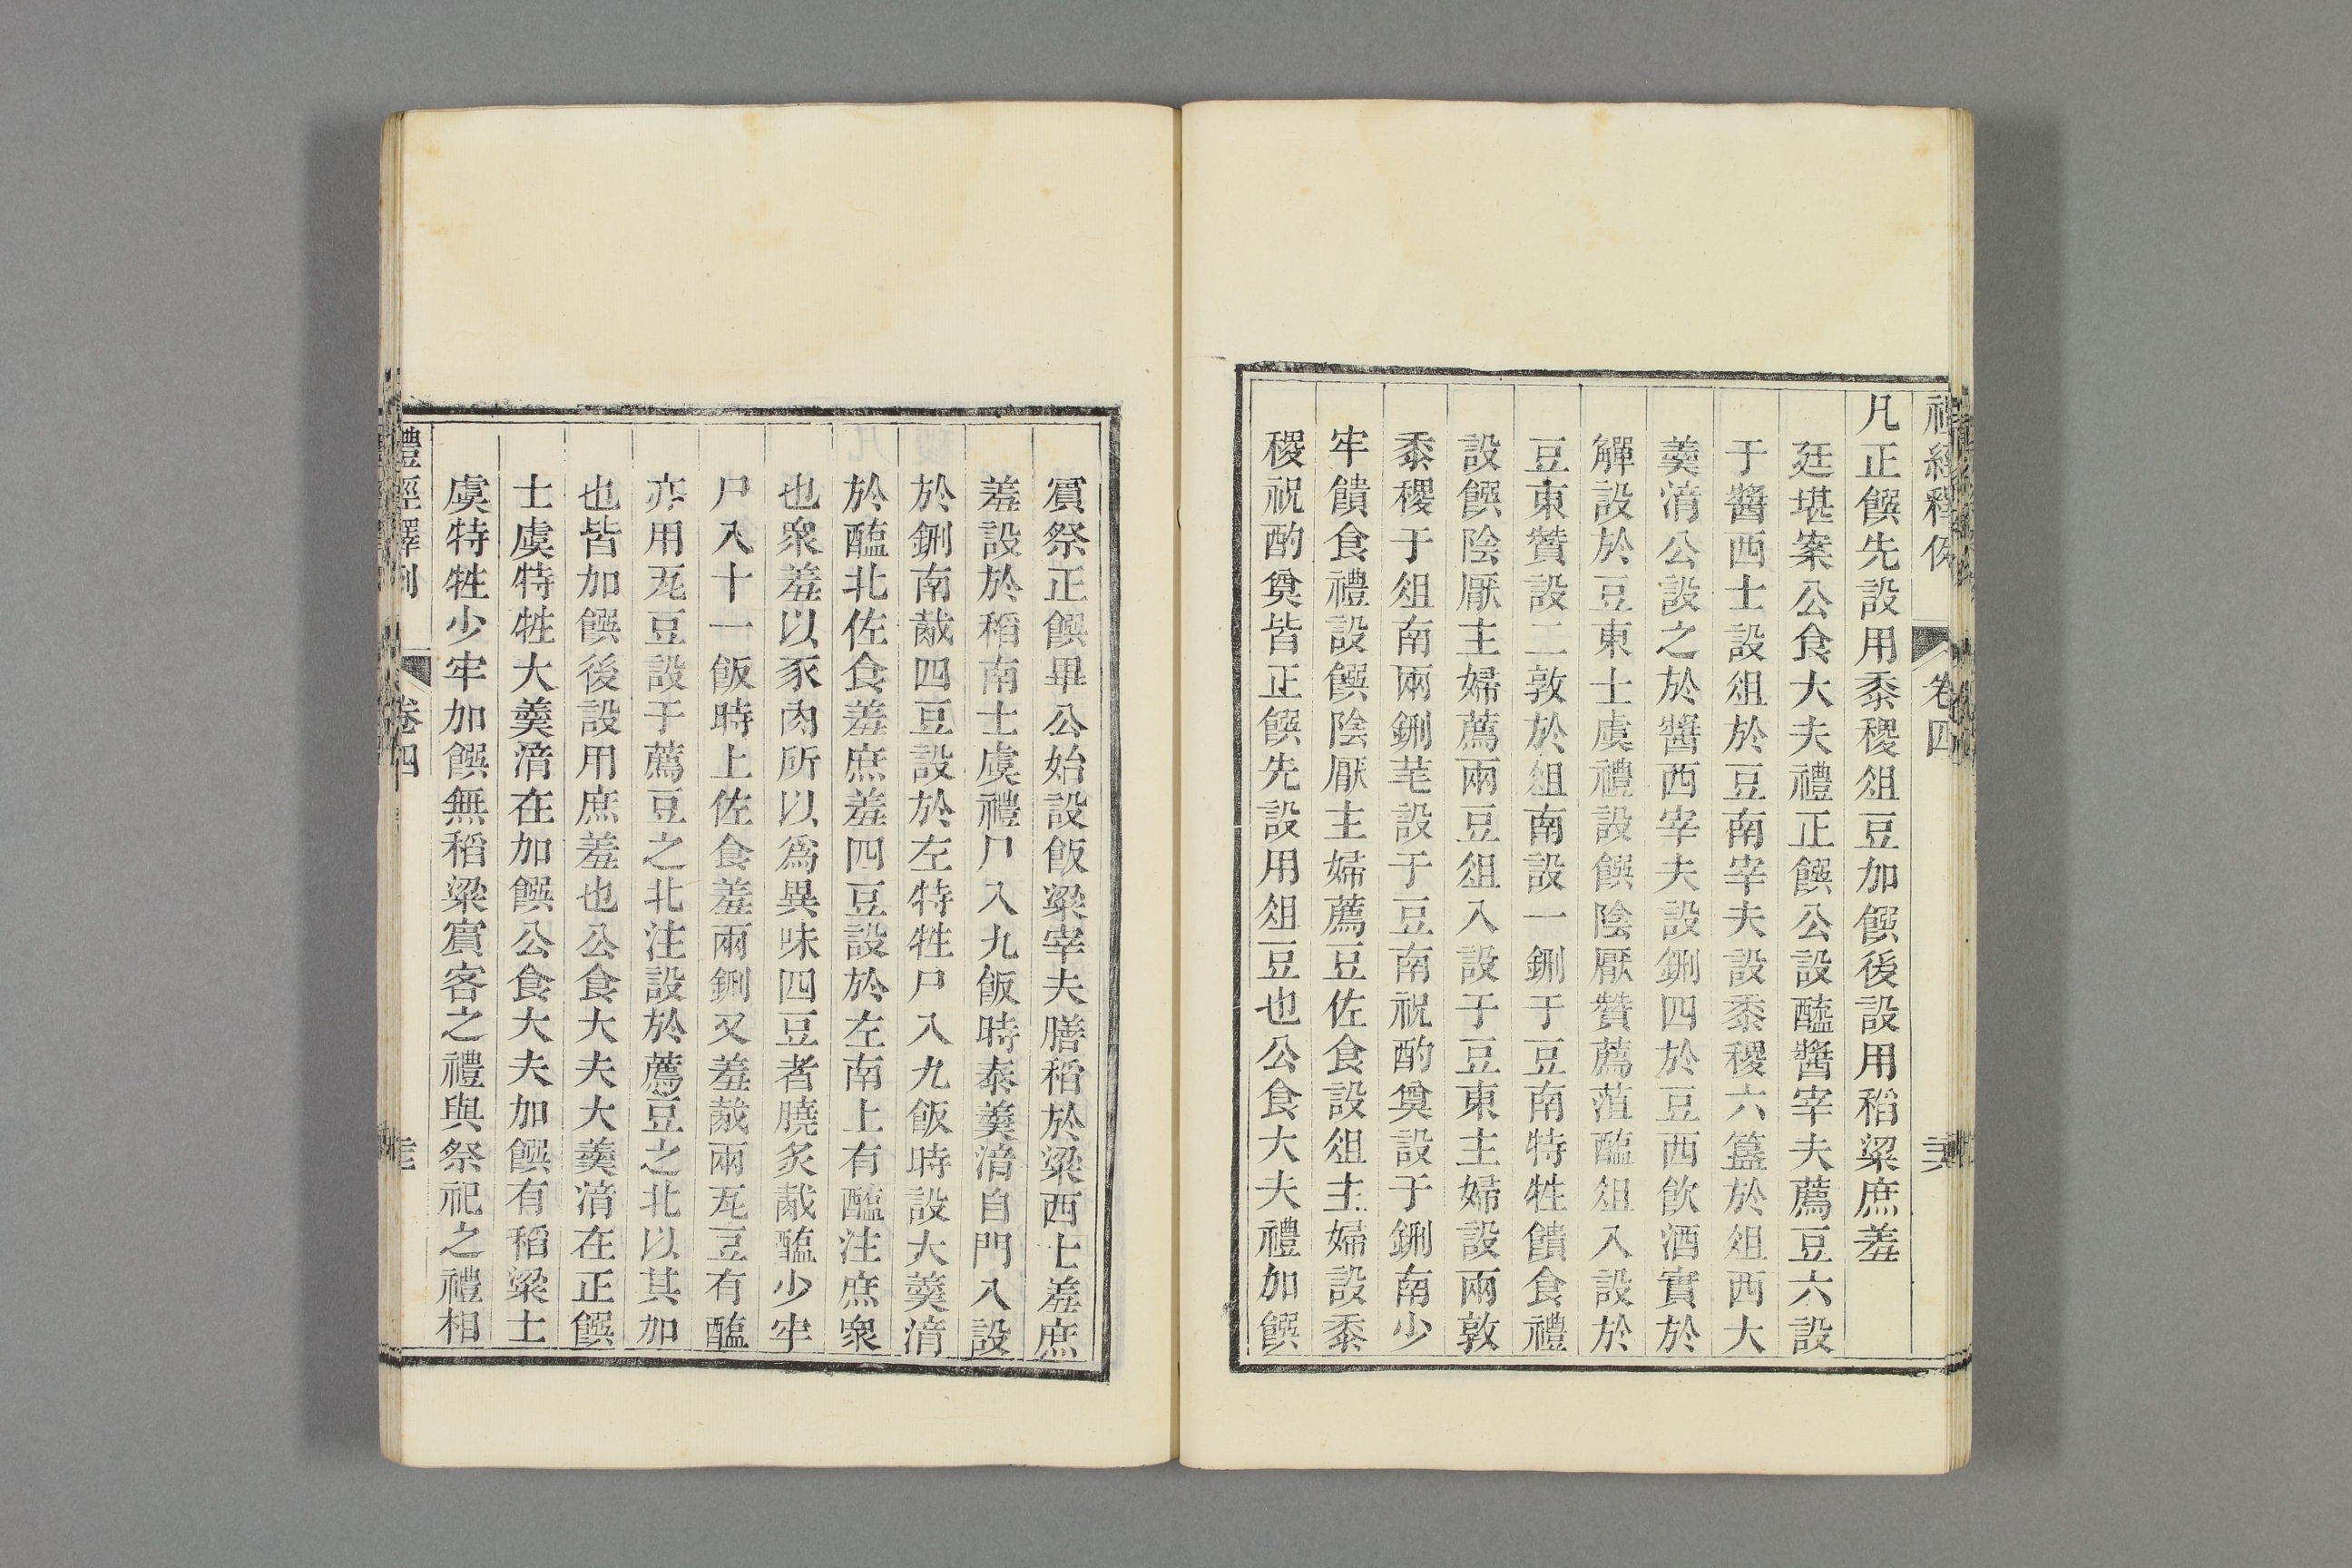 凡正饌先設用黍稷俎豆加饌後設用稻粱庶羞
廷堪案公食大夫禮正饌公設醯醬宰夫薦豆六設
于醬西士設俎於豆南宰夫設黍稷六簋於俎西大
羹湆公設之於醬西宰夫設鉶四於豆西飮酒實於
觶設於豆東士虞禮設饌陰厭贊薦菹醢俎入設於
豆東贊設二敦於俎南設一鉶于豆南特牲饋食禮
設饌陰厭主婦薦兩豆俎入設于豆東主婦設兩敦
黍稷于俎南兩鉶芼設于豆南祝酌奠設于鉶南少
牢饋食禮設饌陰厭主婦薦豆佐食設俎主婦設黍
稷祝酌奠皆正饌先設用俎豆也公食大夫禮加饌
賓祭正饌畢公始設飯粱宰夫膳稻於粱西士羞庶
羞設於稻南士虞禮尸入九飯時泰羹湆自門入設
於鉶南胾四豆設於左特牲尸入九飯時設大羹湆
於醢北佐食羞庶羞四豆設於左南上有醢注庶衆
也衆羞以豕肉所以爲異味四豆者膮炙胾醢少牢
尸入十一飯時上佐食羞兩鉶又羞胾兩瓦豆有醢
亦用瓦豆設于薦豆之北注設於薦豆之北以其加
也皆加饌後設用庶羞也公食大夫大羹湆在正饌
士虞特牲大羹湆在加饌公食大夫加饌有稻粱士
虞特牲少牢加饌無稻粱賓客之禮與祭祀之禮相
禮經釋例 卷四